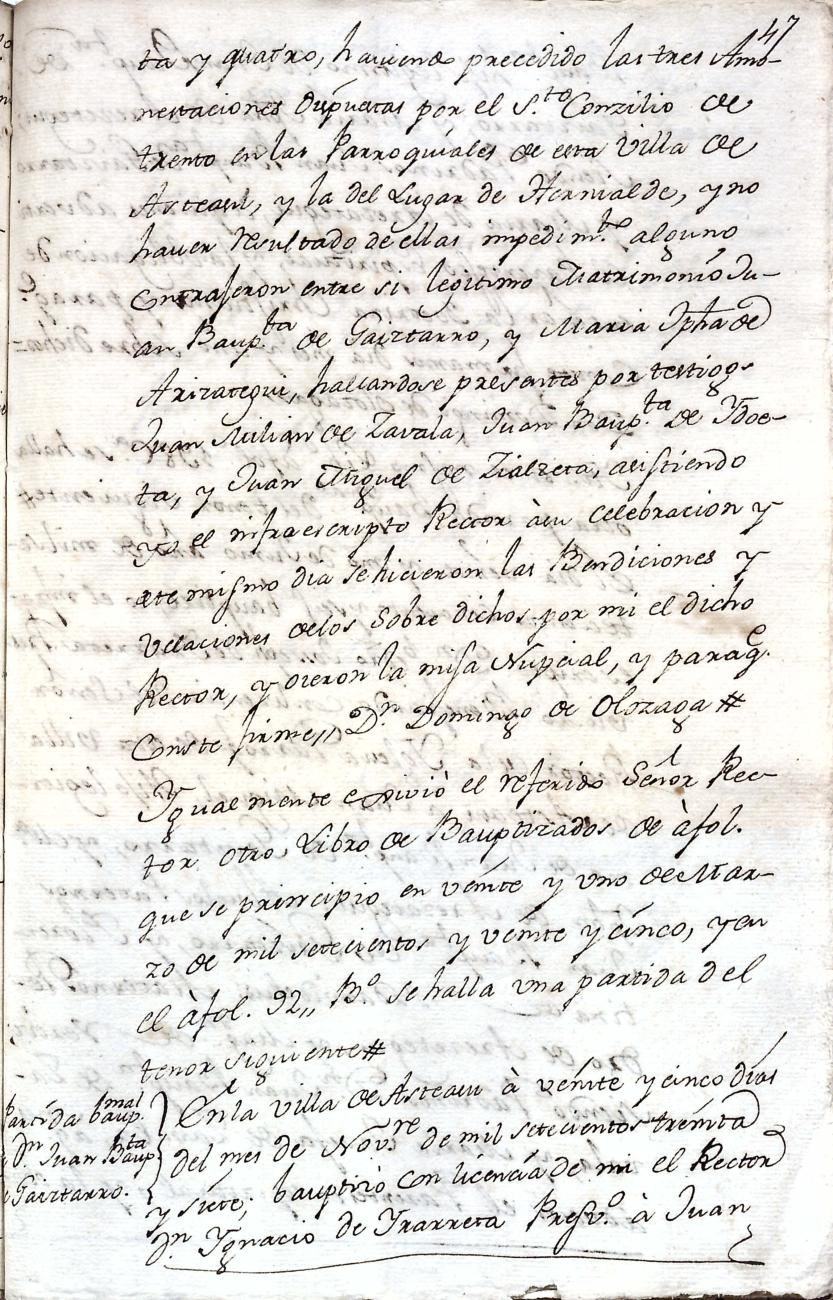 47
ta y quatro, haviendo precedido las tres Amo-
nestaciones dispuestas por el S.to Conzilio de
trento en las Parroquiales de esta villa de
Asteasu, y la del Lugar de Hernialde, y no
haver resultado de ellas impedim.to alguno,
Contrajeron entre si legitimo Matrimonio Ju-
an Baup.ta de Gaiztarro, y Maria Jpha de
Arizategui, hallandose presentes por testigos
Juan Milian de Zavala, Juan Baup.ta de Ydoe-
ta, y Juan Miguel de Zialzeta, asistiendo
yo el infraescripto Rector à su celebracion y
este mismo dia se hicieron las Bendiciones y
velaciones delos Sobre dichos por mi el dicho
Rector, y oieron la misa Nupcial, y para q.e
Conste firme,, D.n Domingo de Olozaga #
Ygualmente exivió el referido Señor Rec-
tor otro Libro de Bauptizados de à fol.
que se principio en veinte y uno de Mar-
zo de mil setecientos y veinte y cinco, y en
el à fol. 92,, B.º se halla una partida del
tenor siguiente #
Partida baup.mal
D.n Juan Baup.ta
Gaiztarro.
En la villa de Asteasu à veinte y cinco dias
del mes de Nov.re de mil setecientos treinta
y siete; bauptizó con licencia de mi el Rector
D.n Ygnacio de Yrarreta Presv.º à Juan